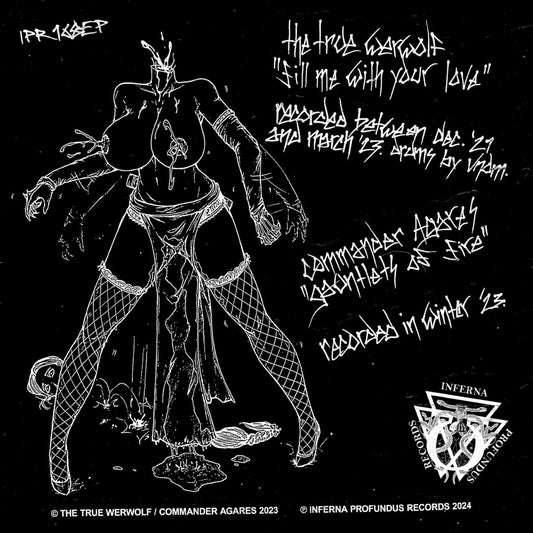 IPR168EP
the true werwolf
"fill me with your love"
recorded between dec. '21
and march '23. drums by vnom.
commander Agares
"gauntlets of fire"
recorded in winter '23.
INFERNA
PROFUNDUS
RECORDS
© THE TRUE WERWOLF / COMMANDER AGARES 2023
℗ INFERNA PROFUNDUS RECORDS 2024